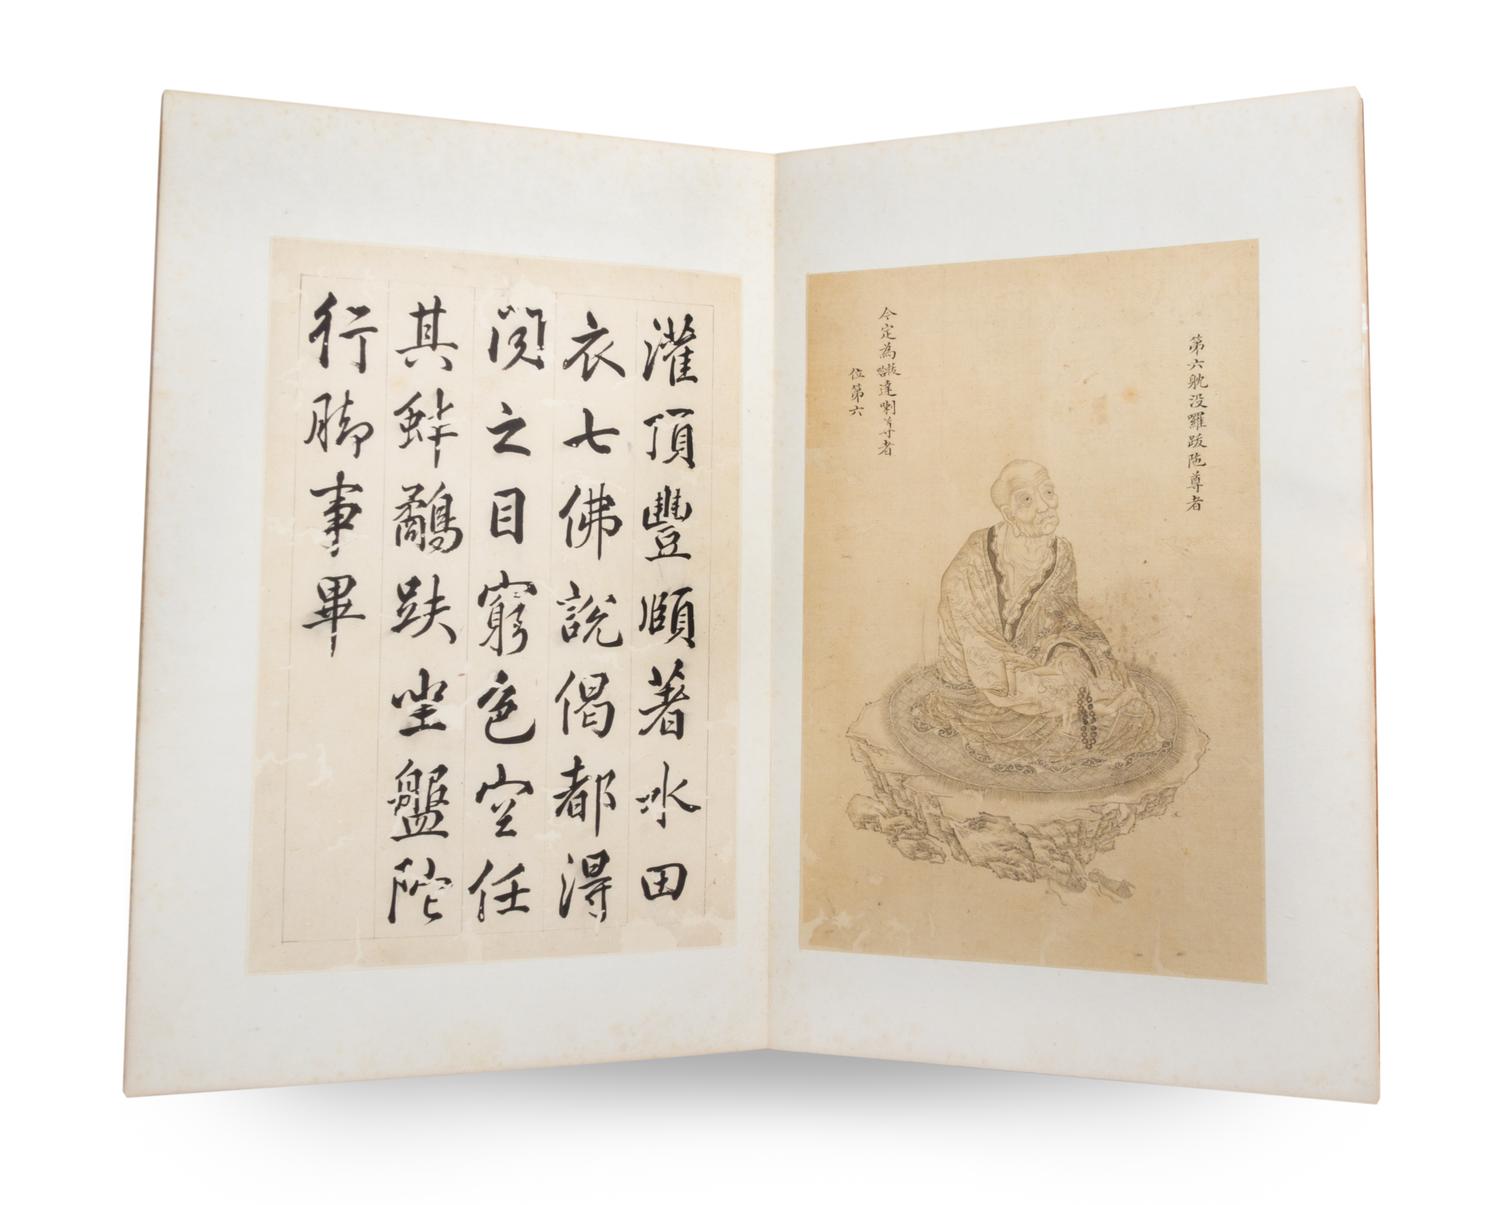 第六躭没囉跋陁尊者
今定為拔哈達喇尊者
位第六
灌頂豐頤著水田
衣七佛說偈都得
閱之目窮色空任
其蚌鷸趺坐盤陀
行脚事畢